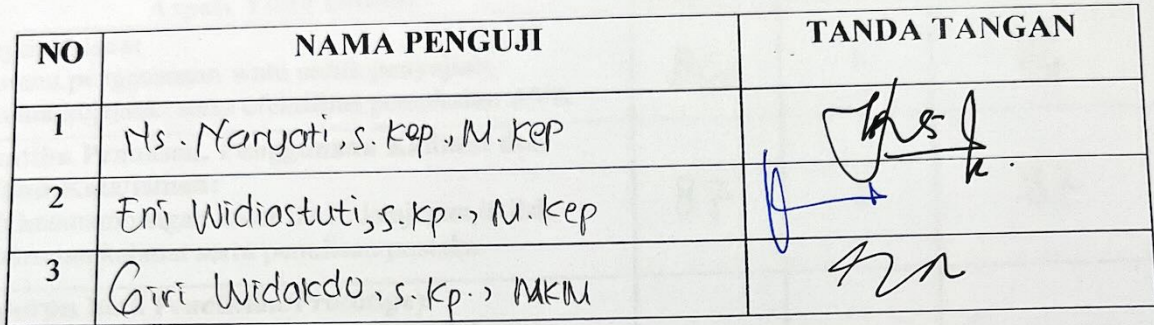 NO NAMA PENGUJI TANDA TANGAN
1 Ns. Naryati, s. kep., M. kep
2 Eni Widiastuti, s. kp., M. kep
3 Giri Widakdo, s. kp., MKM